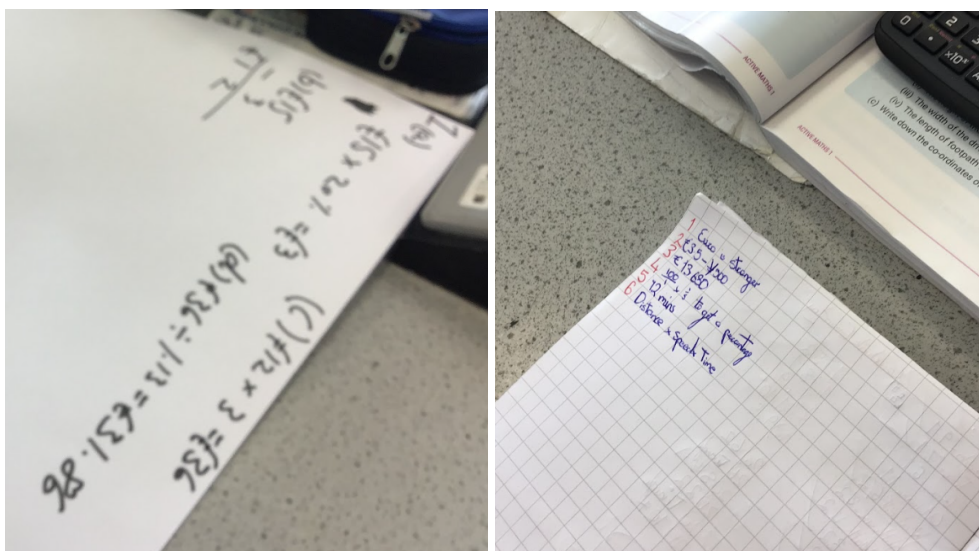 2(a)
€15 × 20% = €3
(b) €15
- 3
€12
(c) €12 × 3 = €36
(d) €36 ÷ 1.13 = €31.86
ACTIVE MATHS 1
ACTIVE MATHS 1
(iii) The width of the dri
(iv) The length of footpath
(c) Write down the co-ordinates o
0
.
2
3
×10ˣ
1 Euro is stronger
2 €35 -
3 €13680
4 100 × to get a percentage
5 72 mins
6 Distance × Speed Time